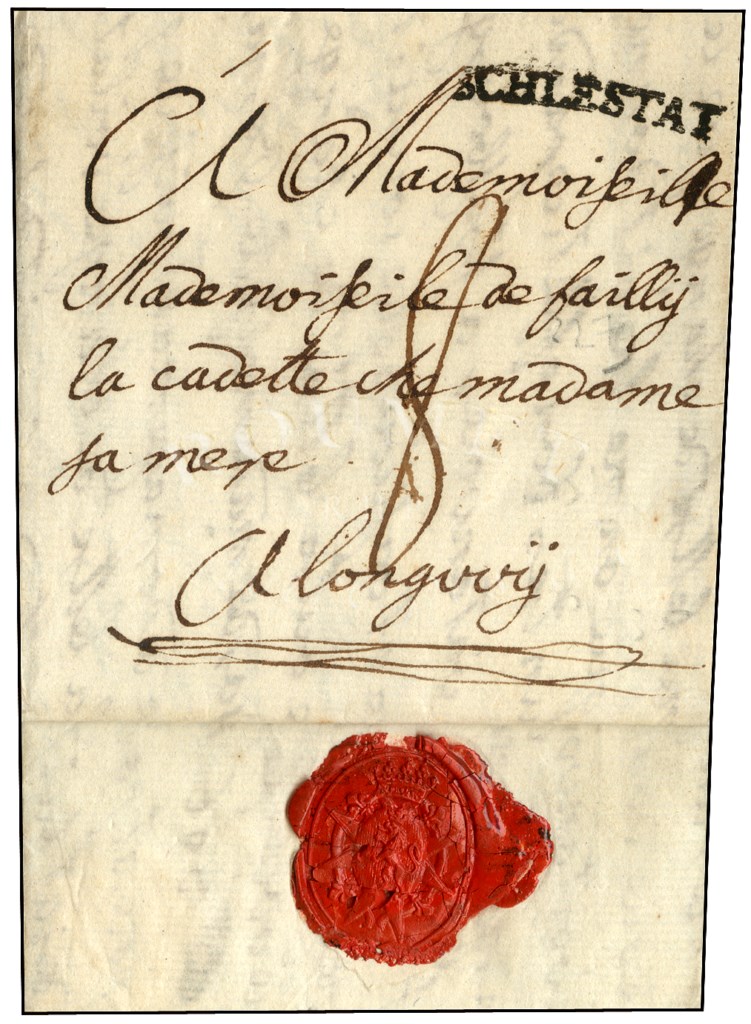 SCHLESTAT
A Mademoiseille
Mademoiseile de faillÿ
la cadette che madame
sa mere
8
A longvvÿ